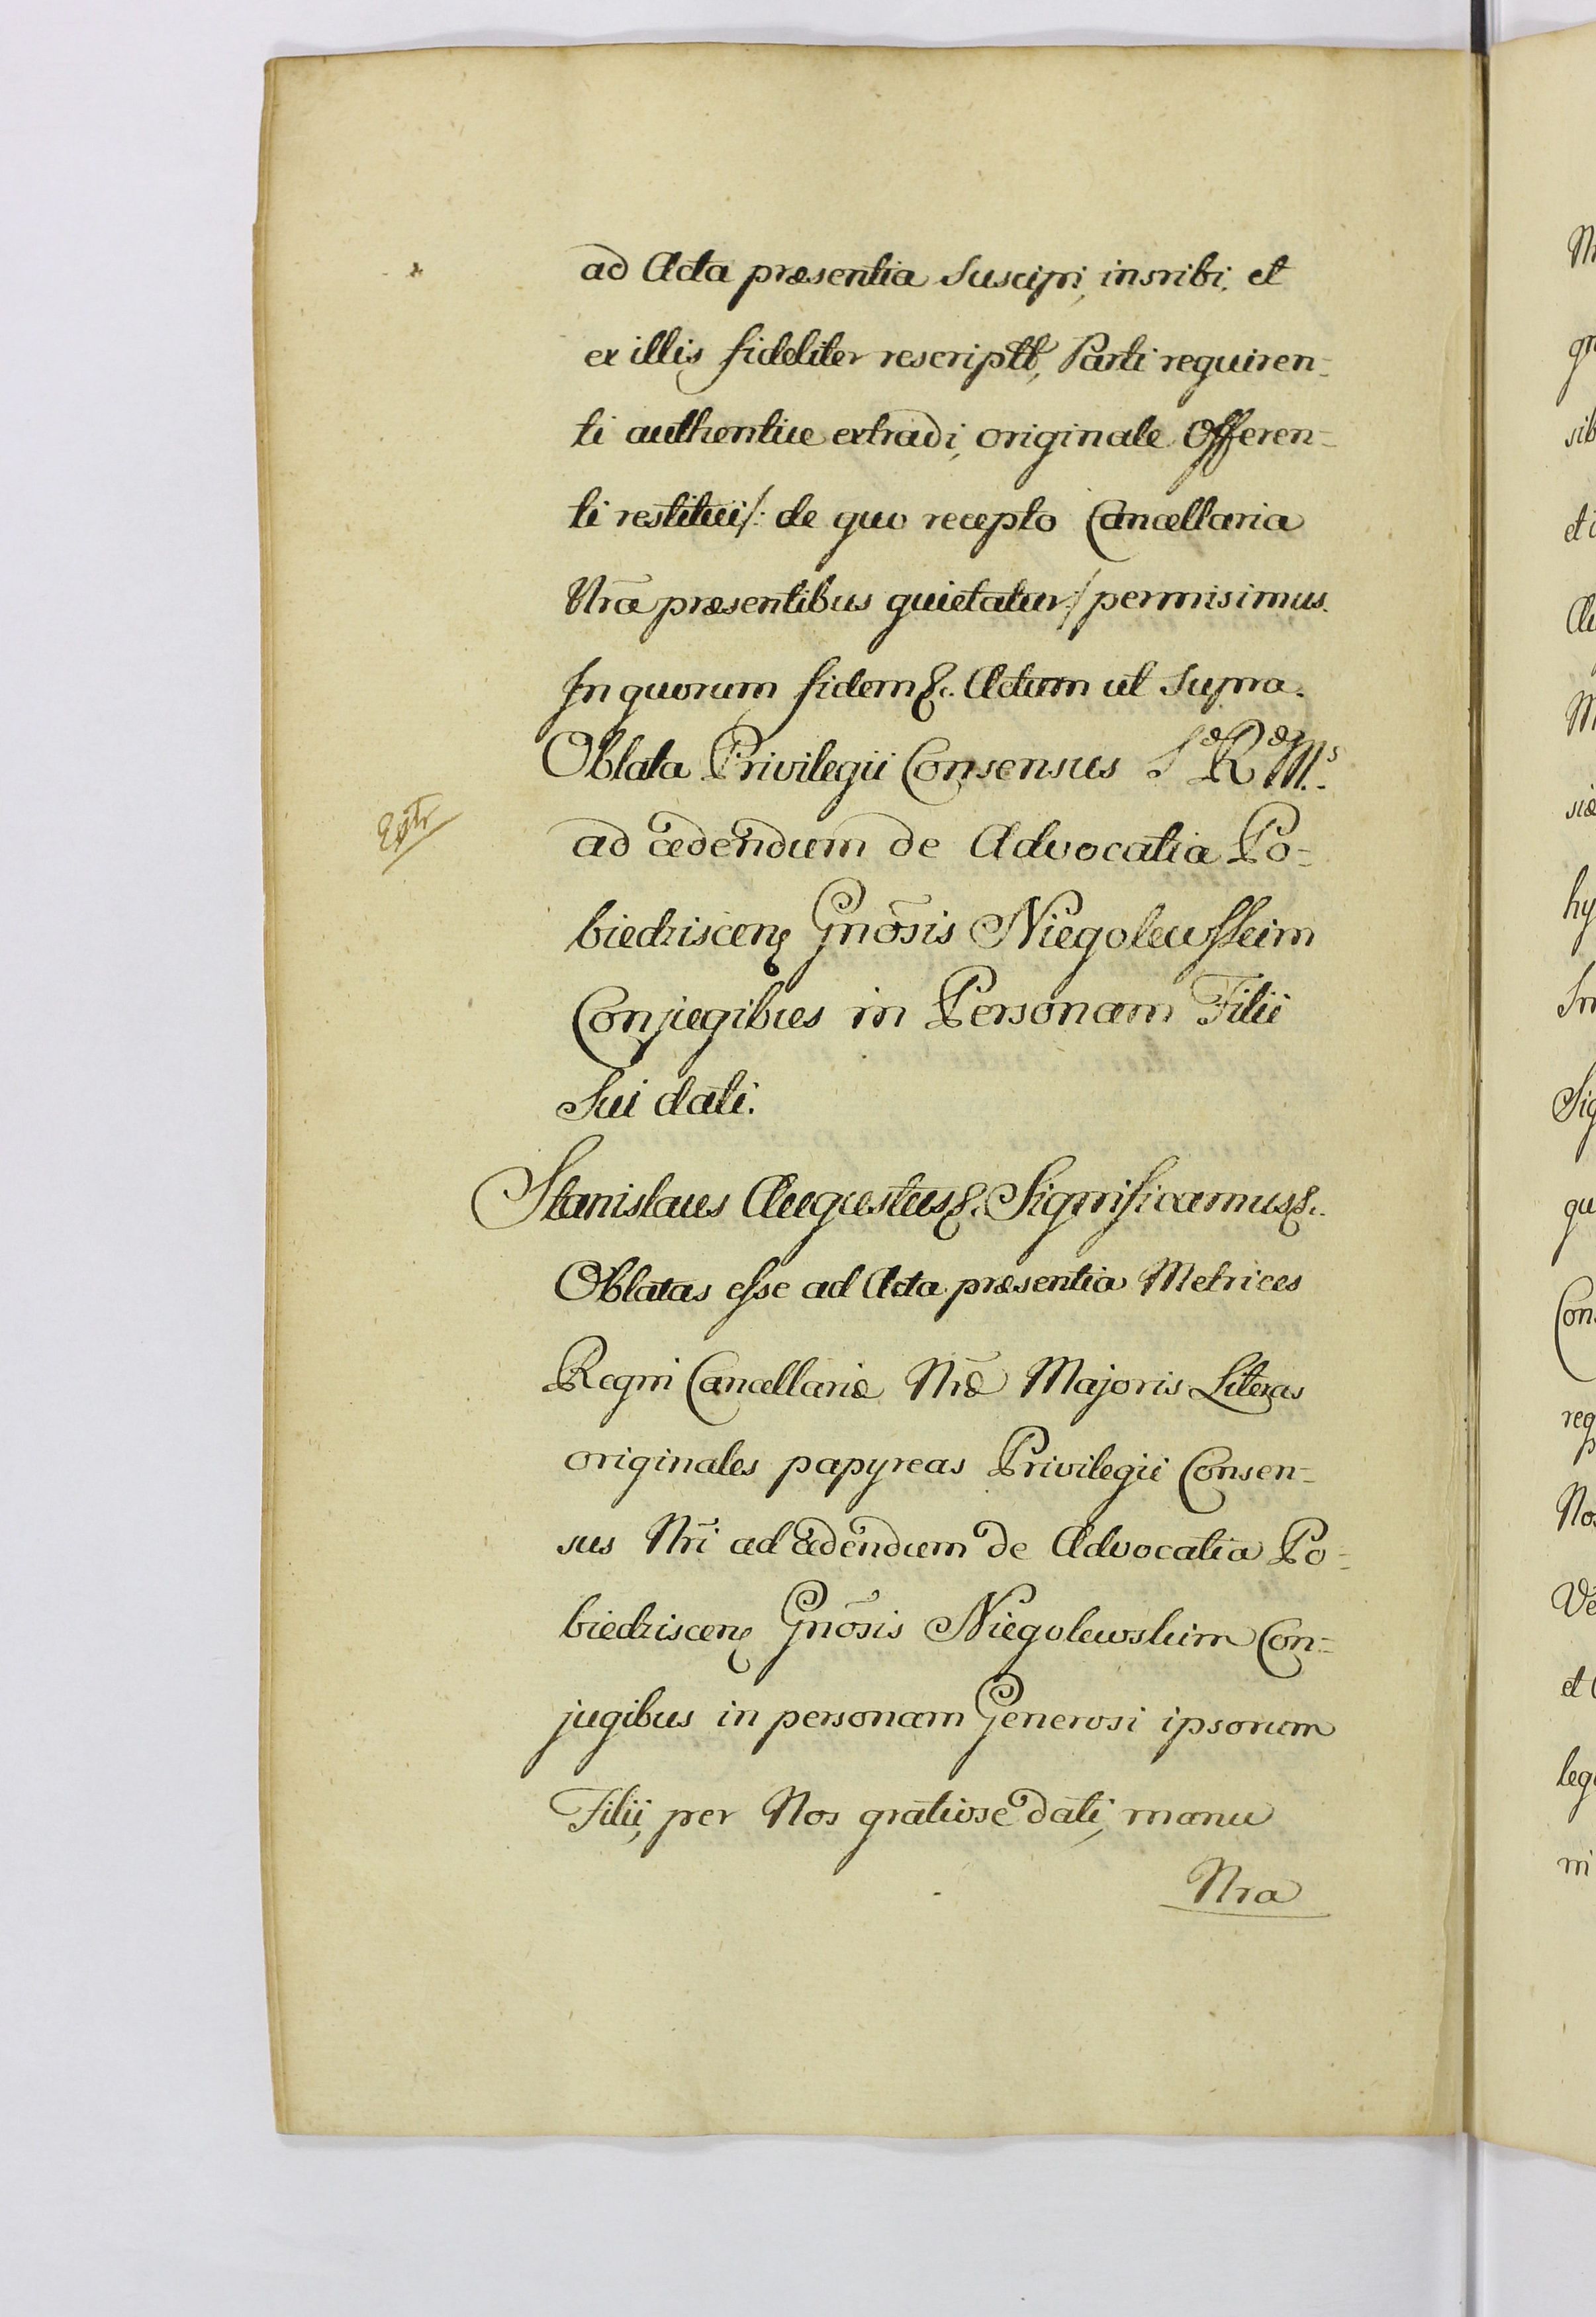 ad Acta præsentia suscipi, inscribi, et
ex illis fideliter rescriptū, Parti requiren-
ti authentice extradi, originale Offeren-
ti restitui /: de quo recepto Cancellaria
Nrā præsentibus quietatur :/ permisimus.
In quorum fidem &c. Actum ut supra.
Oblata Privilegii Consensus S^æ R^æ M^s.
ad cedendum de Advocatia Po-
Extr
biedziscen̄ Gnōsis Niegolewskim
Conjugibus in Personam Filii
sui dati.
Stanislaus Augustus &c. Significamus &c.
Oblatas esse ad Acta præsentia Metrices
Regni Cancellariæ Nrǣ Majoris Literas
originales papyreas Privilegii Consen-
sus Nrī ad cedendum de Advocatia Po-
biedziscen̄ Gnōsis Niegolewskim Con-
jugibus in personam Generosi ipsorum
Filii, per Nos gratiose dati, manu
Nra